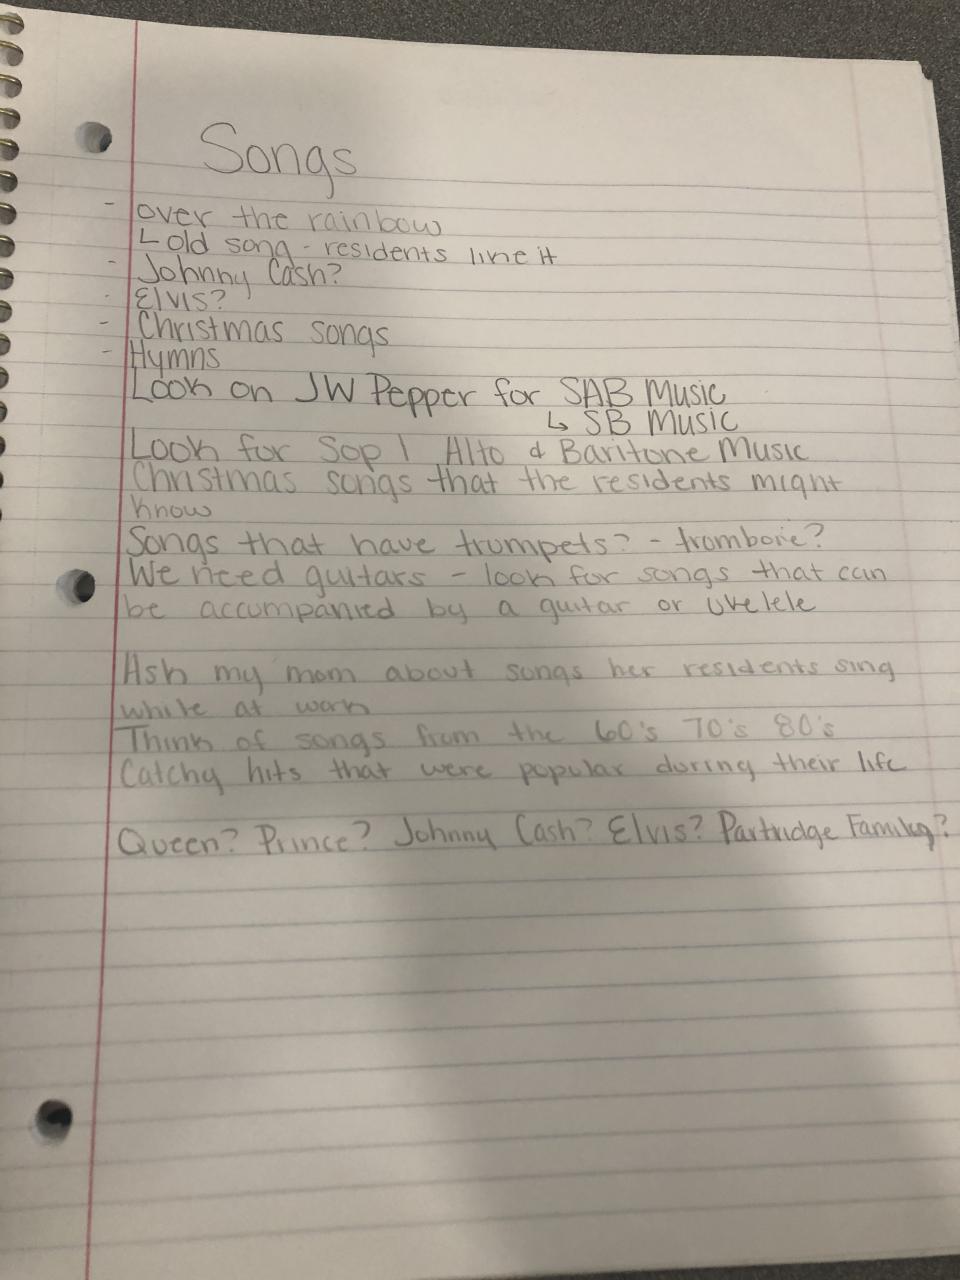 Songs
- over the rainbow
L old song - residents like it
- Johnny Cash?
- Elvis?
- Christmas songs
- Hymns
Look on JW Pepper for SAB Music
↳ SB Music
Look for Sop 1 Alto & Baritone Music
Christmas songs that the residents might
know
Songs that have trumpets? - trombone?
We need guitars - look for songs that can
be accompanied by a guitar or ukelele
Ask my mom about songs her residents sing
while at work
Think of songs from the 60's 70's 80's
Catchy hits that were popular during their life
Queen? Prince? Johnny Cash? Elvis? Partridge Family?